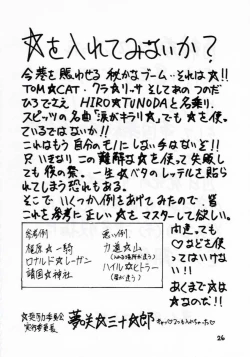 ☆を入れてみないか?
今巷を賑わせる秘かなブーム‥それは☆!!
TOM☆CAT・クラ☆リーサ そしてあのつのだ
ひろでさえ HIRO☆TUNODAと名乗り、
スピッツの名曲「涙がキラリ☆」でも☆を使っ
ているではないか!!
これはもう自分のモノにしない手はないぞ!!
只 いきなりこの難解な☆を使って失敗し
ても後の祭。一生☆ベタのレッテルを貼ら
れてしまう恐れもある。
そこで いくつか例をあげてみたので、皆
これを参考に正しい☆をマスターして欲しい。
参考例
梶原☆一騎
ロナルド☆レーガン
靖国☆神社
悪い例
力道☆山
(入れる場所が違う)
ハイル☆ヒトラー
(星が違う)
間違っても
♡などを使
ってはいけな
い!!
あくまで☆は
☆なのだ!!
夢咲☆三十郎
26